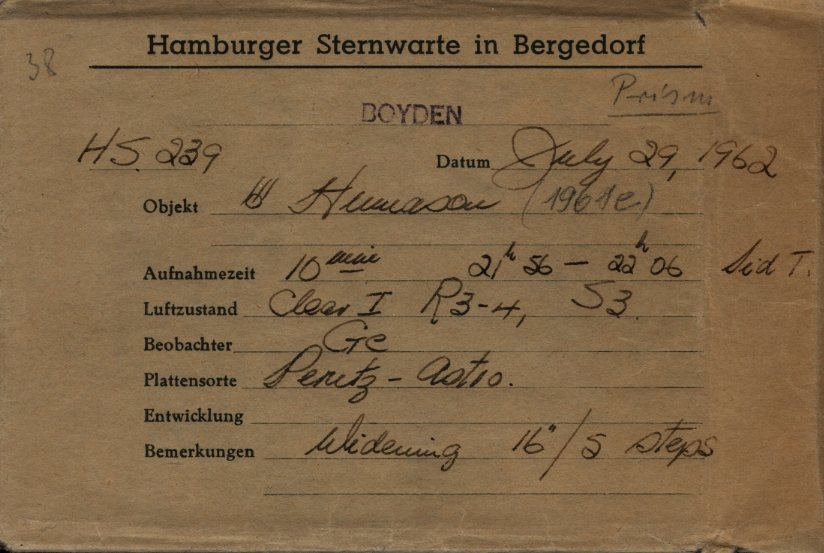 Hamburger Sternwarte in Bergedorf
38
Prism
BOYDEN
HS. 239 Datum July 29, 1962
Objekt Humason (1961e)
Aufnahmezeit 10 min 21h 56 – 22h 06 Sid T.
Luftzustand Clear I R3-4, S3.
Beobachter Ge
Plattensorte Perutz – Astro.
Entwicklung
Bemerkungen Widening 16"/5 steps